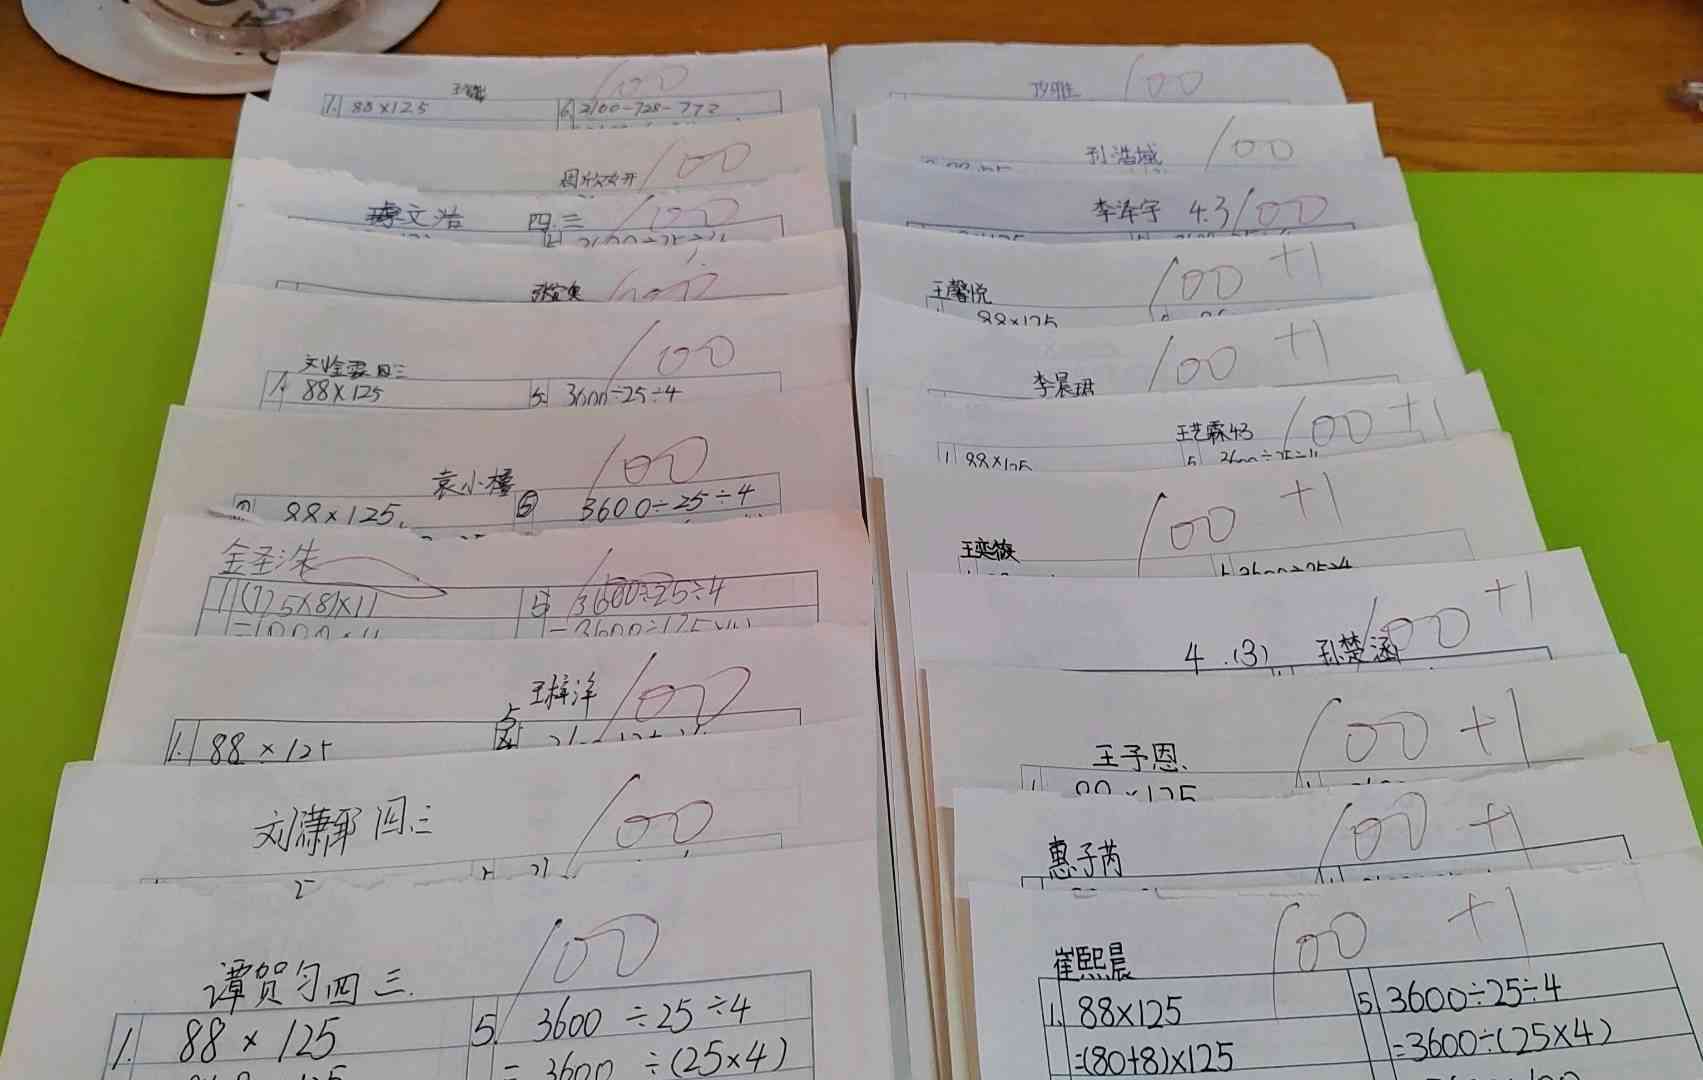 100
1. 88×125
6. 2100-728-772
100
文浩
四.三
100
100
刘金霖四三
100
1. 88×125
5. 3600÷25÷4
袁小橦
100
88×125
⑤ 3600÷25÷4
金圣洙
100
1 (125×8)×11
5 3600÷25÷4
王梓洋
100
1. 88×125
刘潇郡 四.三
100
谭贺匀四三.
100
1. 88×125
5. 3600÷25÷4
=3600÷(25×4)
100
孙浩域
100
李泽宇 4.3
100
王馨悦
100 +1
88×125
李晨珺
100 +1
王艺霖4.3
100 +1
1 88×125
5. 3600÷25÷4
王奕薇
100 +1
3600÷25÷4
4.(3) 孙楚涵
100 +1
王予恩.
100 +1
88×125
惠子芮
100 +1
崔熙晨
100 +1
1. 88×125
5. 3600÷25÷4
=(80+8)×125
=3600÷(25×4)